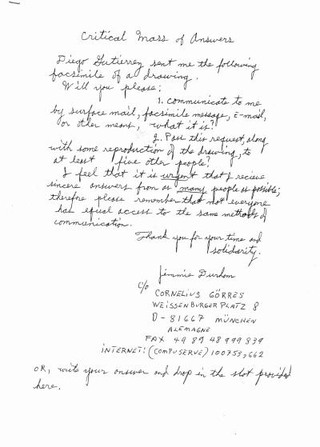 Critical Mass of Answers
Diego Gutierrez sent me the following
facsimile of a drawing.
Will you please:
1. communicate to me
by surface mail, facsimile message, E-mail,
or other means, "what it is?"
2. Pass this request, along
with some reproduction of the drawing, to
at least five other people?
I feel that it is urgent that I receive
sincere answers from as many people as possible;
therefore please remember that not everyone
has equal access to the same methods of
communication.
Thank you for your time and
solidarity.
Jimmie Durham
c/o CORNELIUS GÖRRES
WEISSENBURGER PLATZ 8
D - 81667 MÜNCHEN
ALEMAGNE
FAX 49 89 48 999 839
INTERNET: (COMPUSERVE) 100753,662
OR, write your answer and drop in the slot provided
here.